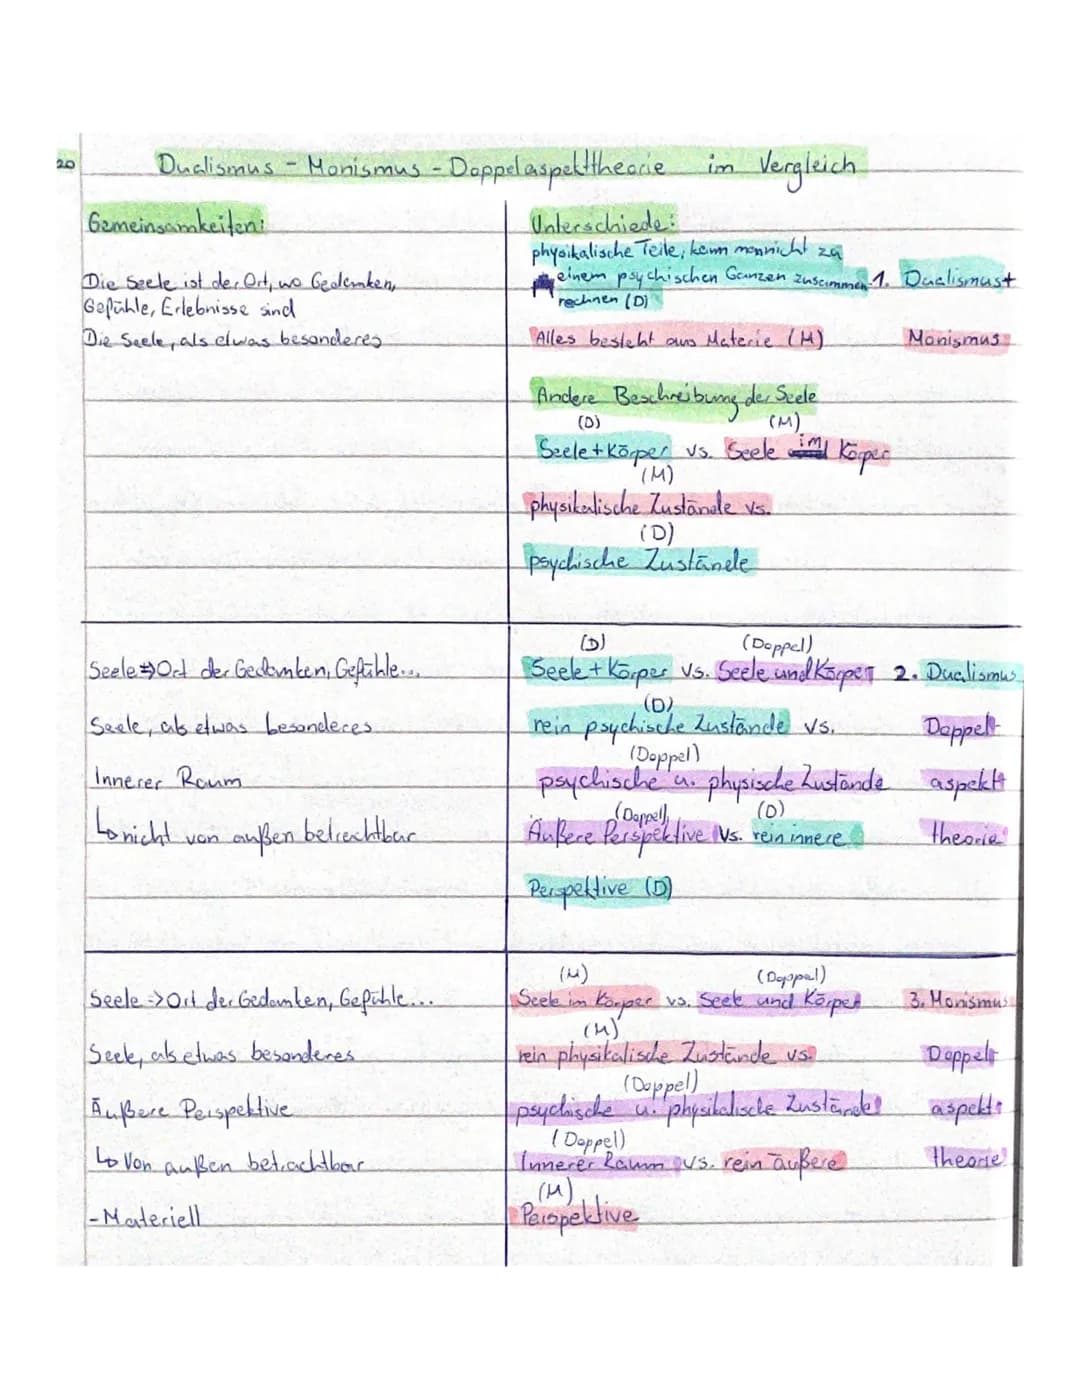 20
Dualismus - Monismus - Doppelaspekttheorie im Vergleich
Gemeinsamkeiten:
Die Seele ist der Ort, wo Gedanken,
Gefühle, Erlebnisse sind
Die Seele, als etwas besonderes
Unterschiede:
physikalische Teile, kann man nicht zu
einem psychischen Ganzen zusammen-
rechnen (D)
1. Dualismus +
Alles besteht aus Materie (M)
Monismus
Andere Beschreibung der Seele
(D) (M)
Seele + Körper vs. Seele im Körper
(M)
physikalische Zustände vs.
(D)
psychische Zustände
Seele => Ort der Gedanken, Gefühle...
Seele, als etwas besonderes
Innerer Raum
↳ nicht von außen betrachtbar
(D) (Doppel)
Seele + Körper vs. Seele und Körper
(D)
rein psychische Zustände vs.
(Doppel)
psychische u. physische Zustände
(Doppel) (D)
Äußere Perspektive vs. rein innere
Perspektive (D)
2. Dualismus
Doppel-
aspekt-
theorie
Seele -> Ort der Gedanken, Gefühle...
Seele, als etwas besonderes
Äußere Perspektive
↳ Von außen betrachtbar
- Materiell
(M) (Doppel)
Seele im Körper vs. Seele und Körper
(M)
rein physikalische Zustände vs.
(Doppel)
psychische u. physikalische Zustände
(Doppel)
Innerer Raum vs. rein äußere
(M)
Perspektive
3. Monismus
Doppel-
aspekt-
theorie